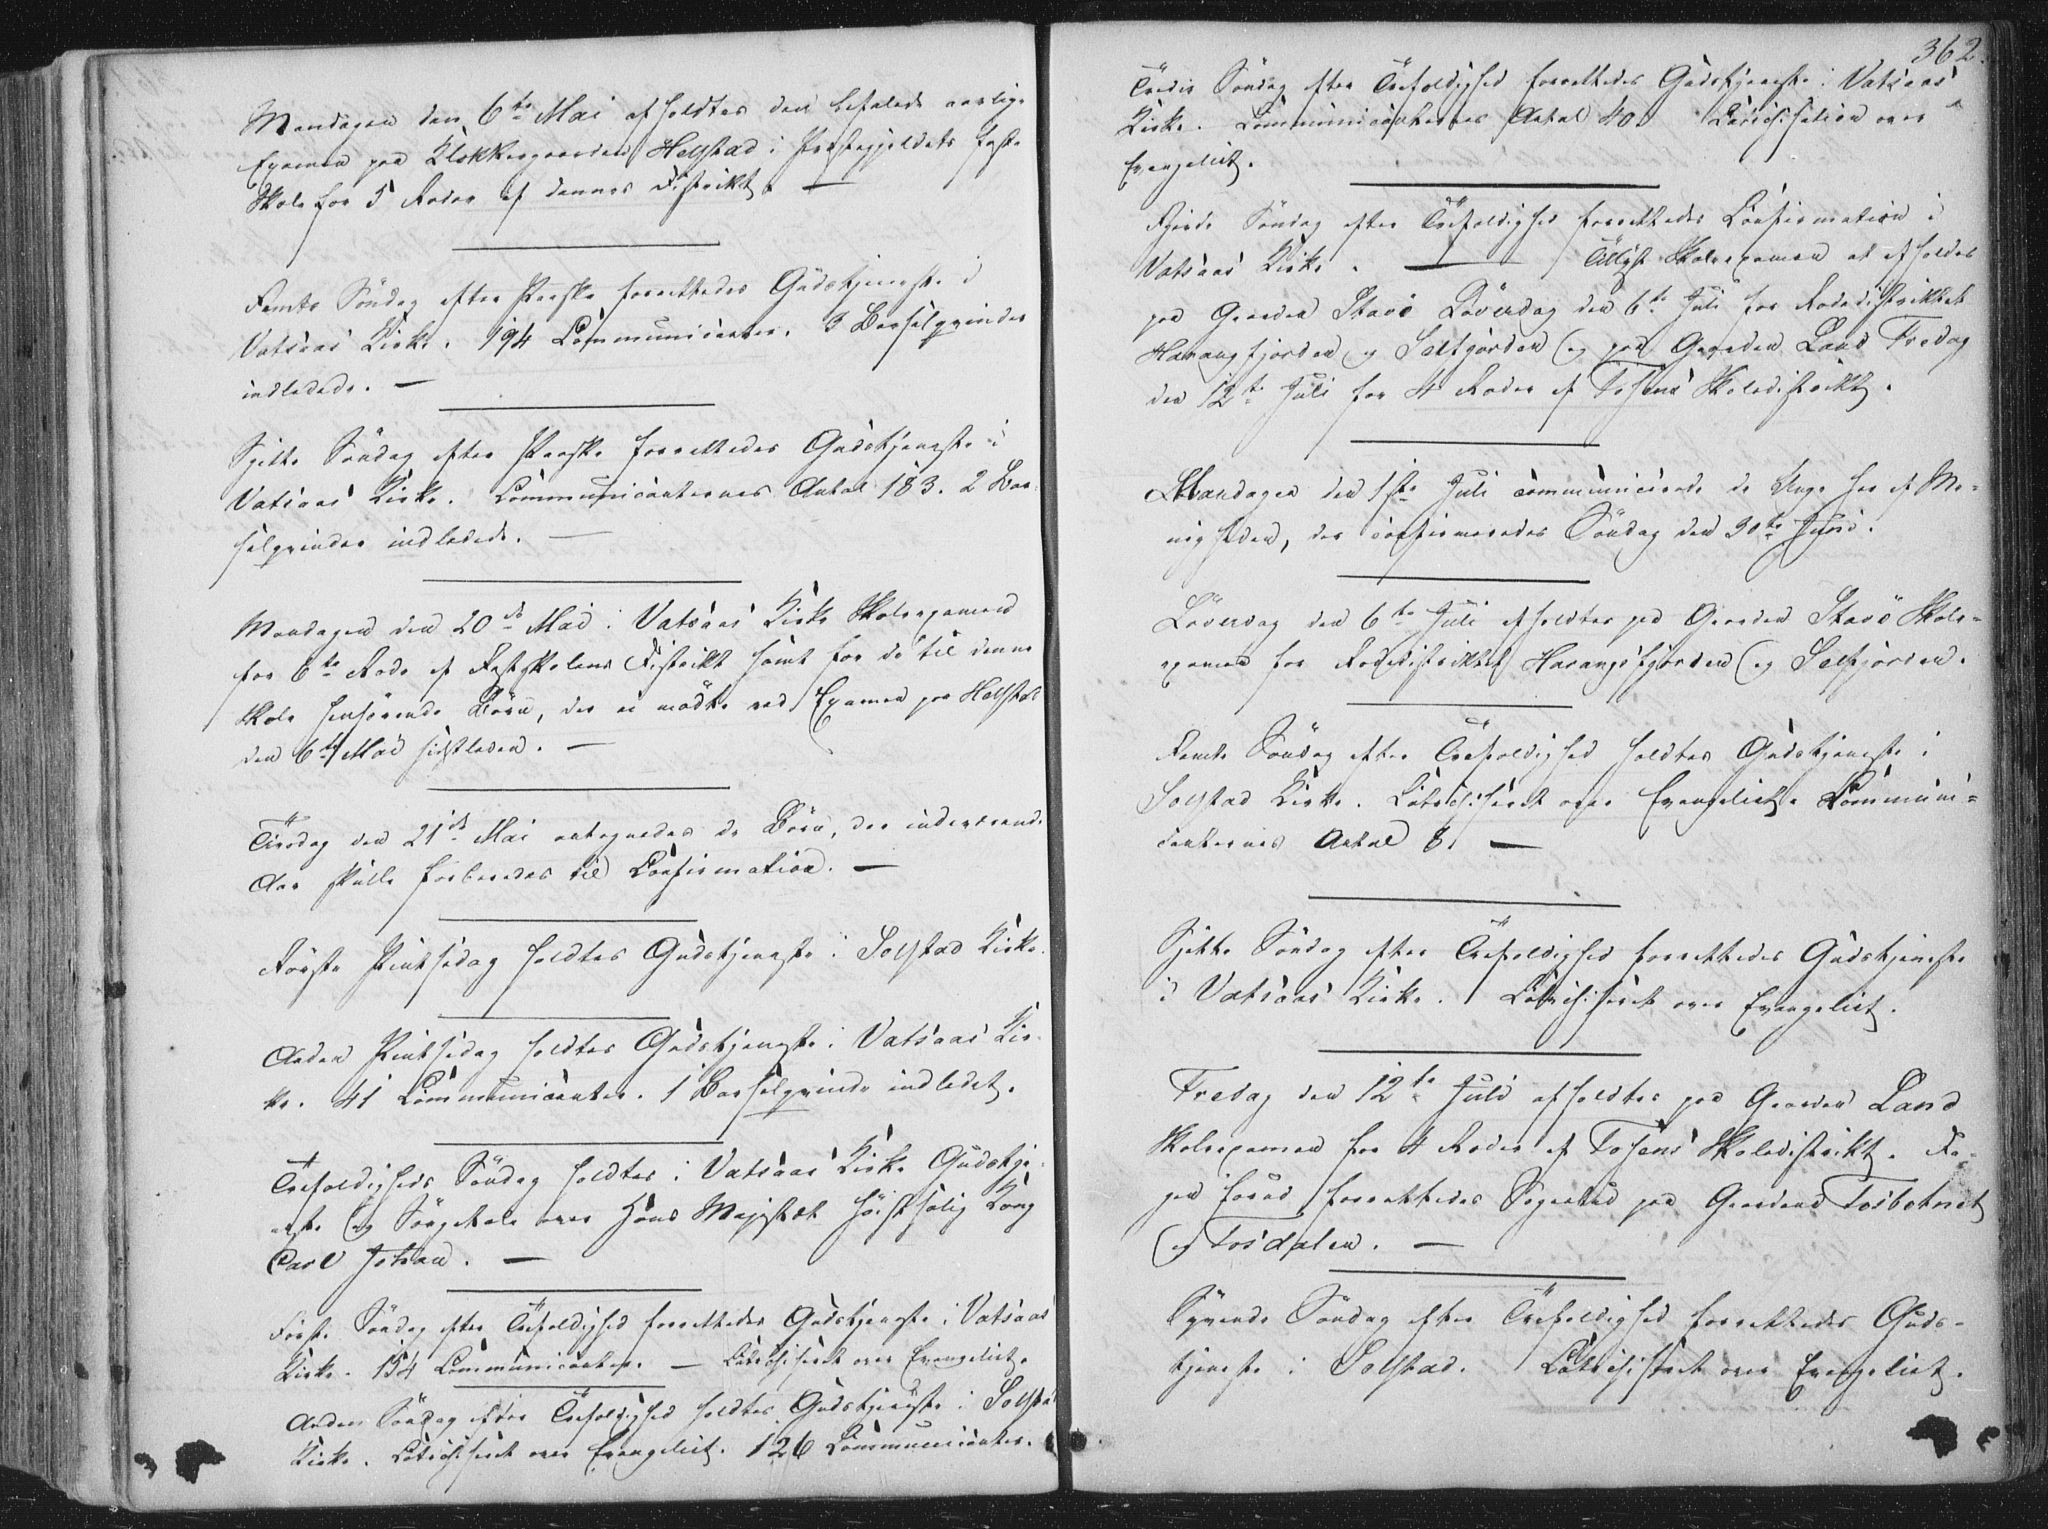 Mandagen den 6te Mai afholdtes den befalede aarlige
Examen paa Klokkergaarden Helstad i Præstegjeldets faste
Skole for 5 Roder af dennes Distrikt. —
Femte Söndag efter Paaske forrettedes Gudstjeneste i
Vatsaas Kirke. 194 Communicanter. 3 Barselqvinder
indledede. —
Sjette Söndag efter Paaske forrettedes Gudstjeneste i
Vatsaas Kirke. Communicanternes Antal 183. 2 Bar-
selqvinder indledede. —
Mandagen den 20de Mai i Vatsaas Kirke Skoleexamen
for 6te Rode af Fastskolens Distrikt samt for de til denne
Skole henhörende Börn, der ei mödte ved Examen paa Helstad
den 6te Mai sidstleden. —
Tirsdag den 21de Mai antegnedes de Börn, der indeværende
Aar skulle forberedes til Confirmation. —
Förste Pintsedag holdtes Gudstjeneste i Solstad Kirke.
Anden Pintsedag holdtes Gudstjeneste i Vatsaas Kir-
ke. 41 Communicanter. 1 Barselqvinde indledet.
Trefoldigheds Söndag holdtes i Vatsaas Kirke Gudstje-
neste og Sörgetale over Hans Majestæt höistsalig Kong
Carl Johan. —
Förste Söndag efter Trefoldighed forrettedes Gudstjeneste i Vatsaas
Kirke. 154 Communicanter. — Catechiseret over Evangeliet.
Anden Söndag efter Trefoldighed holdtes Gudstjeneste i Solstad
Kirke. Catechiseret over Evangeliet. 126 Communicanter.
362.
Tredie Söndag efter Trefoldighed forrettedes Gudstjeneste i Vatsaas
Kirke. Communicanternes Antal 40. Catechisation over
Evangeliet.
Fjerde Söndag efter Trefoldighed forrettedes Confirmation i
Vatsaas Kirke. — Tillyst Skoleexamen at afholdes
paa Gaarden Stavö Löverdag den 6te Juli for Rodedistriktet
Harangfjorden og Sælfjorden og paa Gaarden Land Fredag
den 12te Juli for 4 Roder af Tosens Skoledistrikt.
Mandagen den 1ste Juli communicerede de Unge her af Me-
nigheden, der confirmeredes Söndag den 30te Juni.
Löverdag den 6te Juli afholdtes paa Gaarden Stavö Skole-
examen for Rodedistriktet Harangsfjorden og Sælfjorden.
Femte Söndag efter Trefoldighed holdtes Gudstjeneste i
Solstad Kirke. Catechiseret over Evangeliet. Communi-
canternes Antal 8. —
Sjette Söndag efter Trefoldighed forrettedes Gudstjeneste
i Vatsaas Kirke. Catechiseret over Evangeliet.
Fredag den 12te Juli afholdtes paa Gaarden Land
Skoleexamen for 4 Roder af Tosens Skoledistrikt. Da-
gen forud forrettedes Sognebud paa Gaardene Tosbotnet
og Tosdalen. —
Syvende Söndag efter Trefoldighed forrettedes Guds-
tjeneste i Solstad. Catechiseret over Evangeliet.